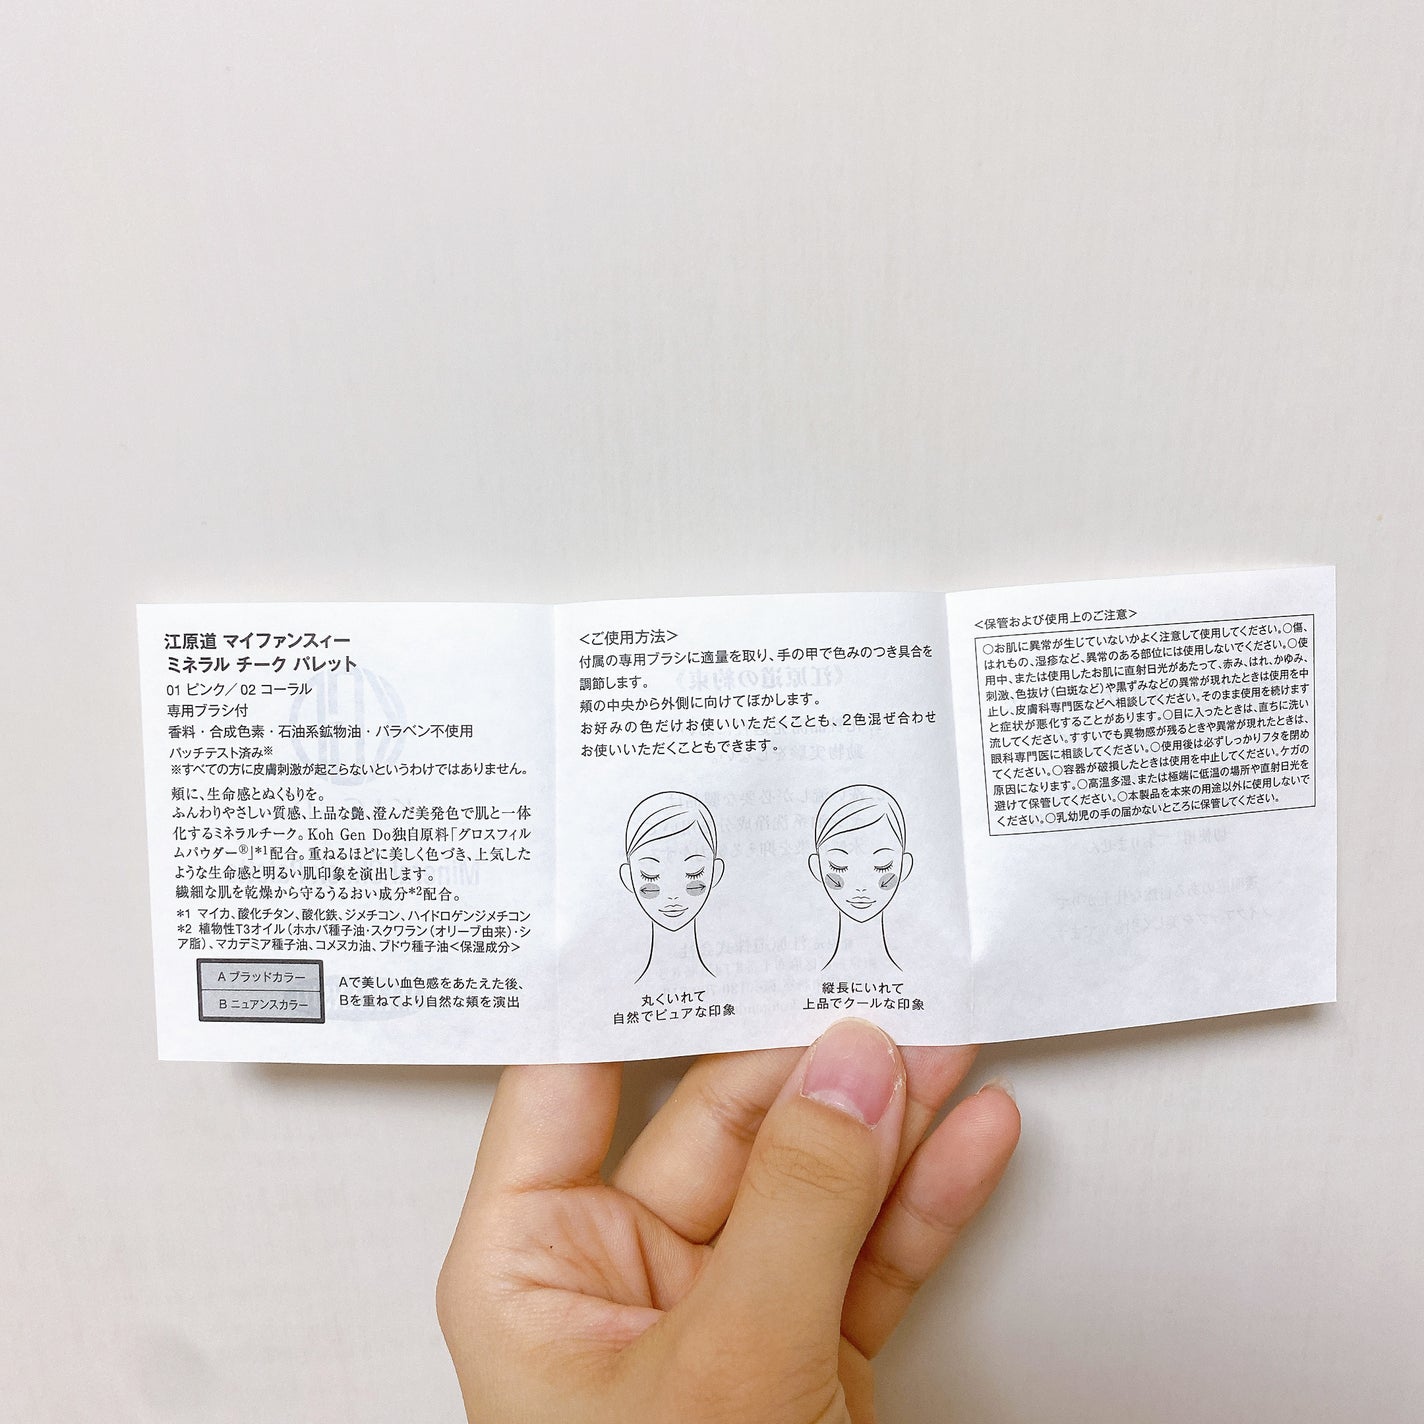 江原道 マイファンスィー
ミネラル チーク パレット
01 ピンク／02 コーラル
専用ブラシ付
香料・合成色素・石油系鉱物油・パラベン不使用
パッチテスト済み※
※すべての方に皮膚刺激が起こらないというわけではありません。
頬に、生命感とぬくもりを。
ふんわりやさしい質感、上品な艶、澄んだ美発色で肌と一体
化するミネラルチーク。Koh Gen Do独自原料「グロスフィル
ムパウダー®」*1配合。重ねるほどに美しく色づき、上気した
ような生命感と明るい肌印象を演出します。
繊細な肌を乾燥から守るうるおい成分*2配合。
*1 マイカ、酸化チタン、酸化鉄、ジメチコン、ハイドロゲンジメチコン
*2 植物性T3オイル（ホホバ種子油・スクワラン（オリーブ由来）・シ
ア脂）、マカデミア種子油、コメヌカ油、ブドウ種子油＜保湿成分＞
A ブラッドカラー
B ニュアンスカラー
Aで美しい血色感をあたえた後、
Bを重ねてより自然な頬を演出
＜ご使用方法＞
付属の専用ブラシに適量を取り、手の甲で色みのつき具合を
調節します。
頬の中央から外側に向けてぼかします。
お好みの色だけお使いいただくことも、2色混ぜ合わせ
お使いいただくこともできます。
丸くいれて
自然でピュアな印象
縦長にいれて
上品でクールな印象
＜保管および使用上のご注意＞
○お肌に異常が生じていないかよく注意して使用してください。○傷、
はれもの、湿疹など、異常のある部位には使用しないでください。○使
用中、または使用したお肌に直射日光があたって、赤み、はれ、かゆみ、
刺激、色抜け（白斑など）や黒ずみなどの異常が現れたときは使用を中
止し、皮膚科専門医などへ相談してください。そのまま使用を続けます
と症状が悪化することがあります。○目に入ったときは、直ちに洗い
流してください。すすいでも異物感が残るときや異常が現れたときは、
眼科専門医に相談してください。○使用後は必ずしっかりフタを閉め
てください。○容器が破損したときは使用を中止してください。ケガの
原因になります。○高温多湿、または極端に低温の場所や直射日光を
避けて保管してください。○本製品を本来の用途以外に使用しないで
ください。○乳幼児の手の届かないところに保管してください。